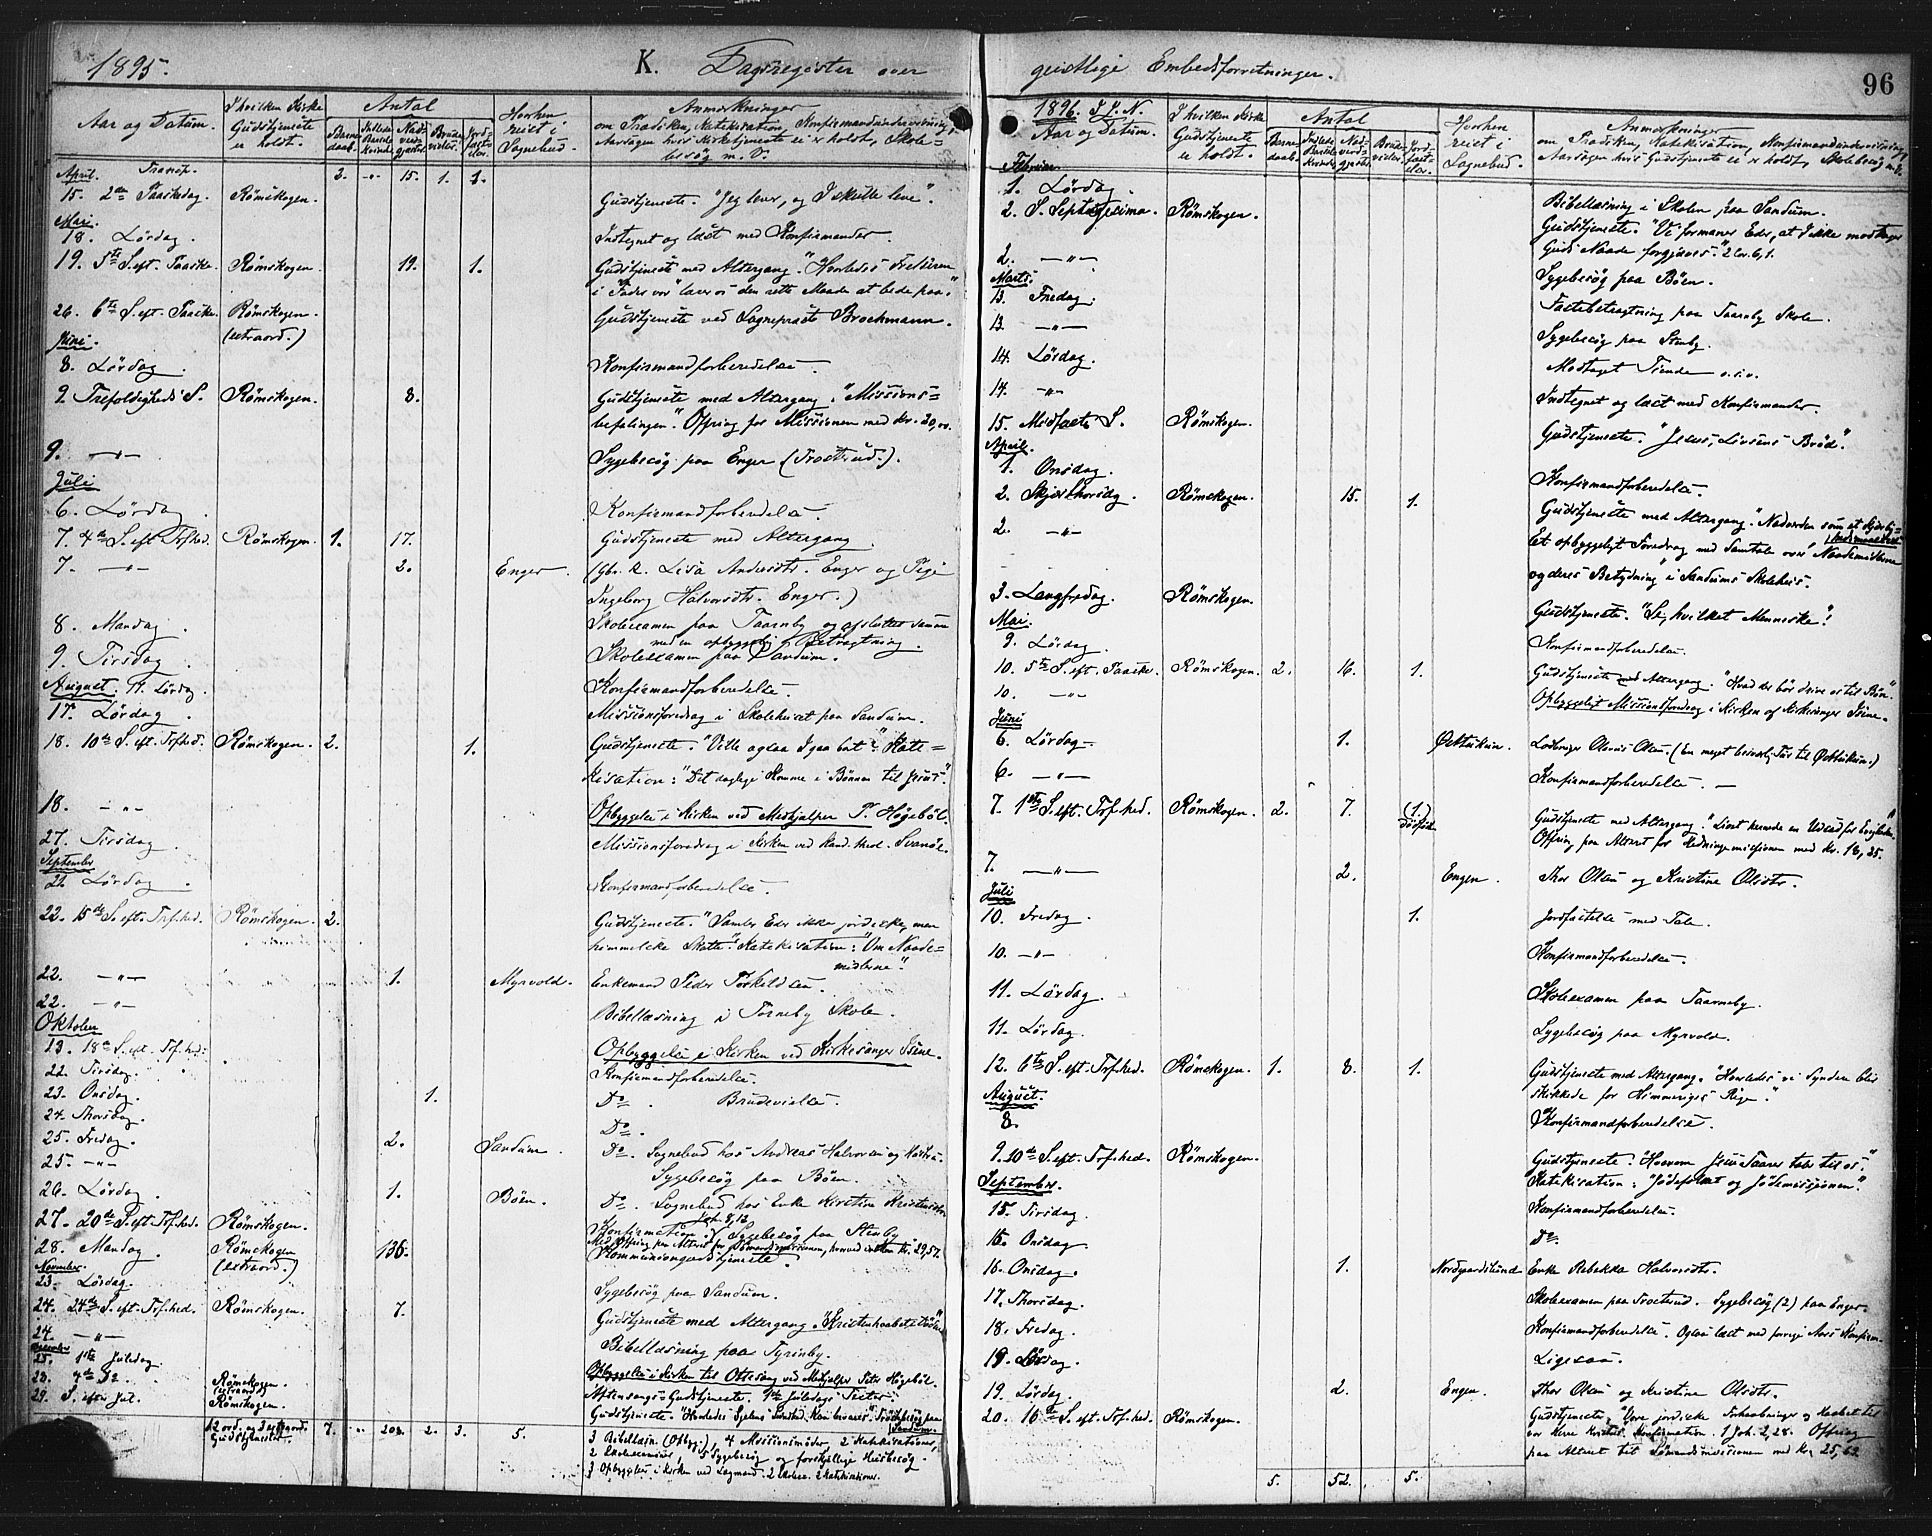 1895.
K. Dagsregister over
Aar og Datum.
I hvilken Kirke Gudstjeneste er holdt.
Antal
Barnedaab.
Indledte Barselkvinder
Nadverdgjæster.
Brudevielser.
Jordfæstelser.
Hvorhen reist i Sognebud.
Anmærkninger
om Prædiken, Katekisation, Konfirmandundervisning, Aarsagen hvis Kirketjeneste ei er holdt, Skolebesøg m. v.
April. Transp. 3. -"- 15. 1. 1.
15. 2den Paaskedag. Römskogen. Gudstjeneste. "Jeg lever, og I skulle leve".
Mai.
18. Lördag. Indtegnet og læst med Konfirmander.
19. 5te S. eft. Paaske. Römskogen. 19. 1. Gudstjeneste med Altergang. "Hvorledes Frelseren
i Fader vor" lærer os den rette Maade at bede paa."
26. 6te S. eft. Paaske. Römskogen. Gudstjeneste ved Sognepræst Brochmann.
(extraord.)
Juni.
8. Lördag. Konfirmandforberedelse.
9. Trefoldigheds S. Römskogen. 8. Gudstjeneste med Altergang. "Missions=
befalingen." Offring for Missionen med Kr. 20,00.
9. -"- Sygebesög paa Enger (Trosterud.).
Juli
6. Lördag. Konfirmandforberedelse.
7. 4de S. eft. Trf.hed. Römskogen. 1. 17. Gudstjeneste med Altergang.
7. -"- 2. Enger. (Gbr. K. Lisa Andersdtr. Enger og Pige
Ingeborg Halvorsdtr. Enger.)
8. Mandag. Skoleexamen paa Taarnby og afsluttet samme
med en opbyggelig Betragtning.
9. Tirsdag. Skoleexamen paa Sandum.
August. 17. Lördag. Konfirmandforberedelse.
17. Lördag. Missionsforedrag i Skolehuset paa Sandum.
18. 10de S. eft. Trf.hed. Römskogen. 2. 1. Gudstjeneste. "Ville ogsaa I gaa bort?" Kate=
kisation: "Det daglige Komme i Bönnen til Jesus."
18. -"- Opbyggelse i Kirken ved Medhjælper P. Högeböl.
27. Tirsdag. Missionsforedrag i Kirken ved Kand. theol. Svanöe.
September
21. Lördag. Konfirmandforberedelse.
22. 15de S. eft. Trf.hed. Römskogen. 2. Gudstjeneste. "Samler Eder ikke jordiske, men
himmelske Skatte." Katekisation: "Om Naade=
midlerne".
22. -"- 1. Myrvold. Enkemand Peder Torkeldsen.
22. -"- Bibellæsning i Torneby Skole.
Oktober
13. 18de S. eft. Trf.hed. Opbyggelse i Kirken ved Kirkesanger Isene.
22. Tirsdag. Konfirmandforberedelse.
23. Onsdag. 1. Do. Brudevielse.
24. Thorsdag. Do.
25. Fredag. 2. Sandum. Do. Sognebud hos Andreas Halvorsen og Hustru.
25. -"- Sygebesög paa Böen.
26. Lördag. 1. Böen. Do. Sognebud hos Enke Kirstine Kristensdtr.
27. 20de S. eft. Trf.hed. Römskogen. Konfirmation. Joh. 8,12. Sygebesög paa Stenby.
Med Offring paa Altret for Sömandsmissionen, hvorved indkom Kr. 29,57.
28. Mandag. Römskogen (extraord.) 136. Kommuniongudstjeneste.
November.
23. Lördag. Sygebesög paa Sandum.
24. 24de S. eft. Trf.hed. Römskogen. 7. Gudstjeneste med Altergang. "Kristenhaabet i Döden".
24. -"- Bibellæsning paa Tyrinby.
December
25. 1ste Juledag. Opbyggelse i Kirken til Ottesang ved Medhjælper Peter Högeböl.
28. 4de D. Römskogen. (extraord.) Aftensangs=Gudstjeneste. 1ste Juledags Texter.
29. S. efter Jul. Römskogen. Gudstjeneste. "Hvorledes Sjelens Fred kan bevares". Sygebesög paa Sandum.
12 ord. og 3 extraord. Gudstjenester. 7. -"- 208. 2. 3. 5.
3 Bibellæsn. (Opbyg.), 4 Missionsmöder, 2 Katekisationer,
2 Skoleexamener, 5 Sygebesög og forskjellige Husbesög.
3 Opbyggelser i Kirken ved Lægmænd. 2 Skolex. 2 Katekisationer.
geistlige Embedsforretninger.
96
1896. I. J. N.
Aar og Datum.
I hvilken Kirke Gudstjeneste er holdt.
Antal
Barnedaab.
Indledte Barselkvinder.
Nadverdgjæster.
Brudevielser.
Jordfæstelser.
Hvorhen reist i Sognebud.
Anmærkninger
om Prædiken, Katekisation, Konfirmandundervisning, Aarsagen hvis Gudstjeneste ei er holdt, Skolebesøg m. v.
Februar
1. Lördag. Bibellæsning i Skolen paa Sandum.
2. S. Septuagesima. Römskogen. Gudstjeneste. "Vi formaner Eder, at I ikke modtager
Guds Naade forgjæves." 2 Cor. 6,1.
2. -"- Sygebesög paa Böen.
Marts.
13. Fredag. Fastebetragtning paa Taarnby Skole.
13. -"- Sygebesög paa Stenby.
14. Lördag. Modtaget Tiende o.s.v.
14. -"- Indtegnet og læst med Konfirmander.
15. Midfaste S. Römskogen. Gudstjeneste. "Jesus, Livsens Bröd".
April.
1. Onsdag. Konfirmandforberedelse.
2. Skjærthorsdag. Römskogen. 15. 1. Gudstjeneste med Altergang. "Nadverden som et Kjærligheds
maaltid".
2. -"- Et opbyggeligt Foredrag med Samtale over "Naademidlerne
og deres Betydning" i Sandums Skolehus.
3. Langfredag. Römskogen. Gudstjeneste. "Se, hvilket Menneske!"
Mai.
9. Lördag. Konfirmandforberedelse.
10. 5te S. eft. Paaske. Römskogen. 2. 16. 1. Gudstjeneste med Altergang. "Hvad der bör drive os til Bön."
10. -"- Opbyggeligt Missionsforedrag i Kirken af Kirkesanger Isene.
Juni
6. Lördag. 1. Östtukun. Losberger Olavus Olsen. (En meget besværlig Tur til Östtukun.)
6. -"- Konfirmandforberedelse.
7. 1ste S. eft. Trf.hed. Römskogen. 2. 7. (1.) dödföd. Gudstjeneste med Altergang. "Livet hernede en Udsæd for Evigheden."
Offring paa Altret for Hedningemissionen med Kr. 18,25.
7. -"- 2. Engen. Thor Olsen og Kristine Olsdtr.
Juli
10. Fredag. 1. Jordfæstelse med Tale.
10. -"- Konfirmandforberedelse.
11. Lördag. Skoleexamen paa Taarneby.
11. Lördag. Sygebesög paa Myrvold.
12. 6te S. eft. Trf.hed. Römskogen. 1. 8. 1. Gudstjeneste med Altergang. "Hvorledes vi Syndere blir
skikkede for Himmeriges Rige."
August.
8. Konfirmandforberedelse.
9. 10de S. eft. Trf.hed. Römskogen. Gudstjeneste. "Hvorom Jesu Taarer taler til os."
Katekisation: "Jödefolket og Jödemissionen".
September.
15. Tirsdag. Konfirmandforberedelse.
16. Onsdag. Do.
16. Onsdag. 1. Nordgaardslund Enke Rebekka Halvorsdtr.
17. Thorsdag. Skoleexamen paa Trosterud. Sygebesög (2) paa Enger.
18. Fredag. Konfirmandforberedelse. Ogsaa læst med forrige Aars Konfirm.
19. Lördag. Ligesaa.
19. Lördag. 2. Engen. Thor Olsen og Kristine Olsdtr.
20. 16de S. eft. Trf.hed. Römskogen. Gudstjeneste. "Vore jordiske Forhaabninger og Haabet til
vor Herre Kristus". Konfirmation. 1 Joh. 2,28. Offring
paa Altret til Sömandsmissionen med Kr. 25,62.
5. 52. 5.